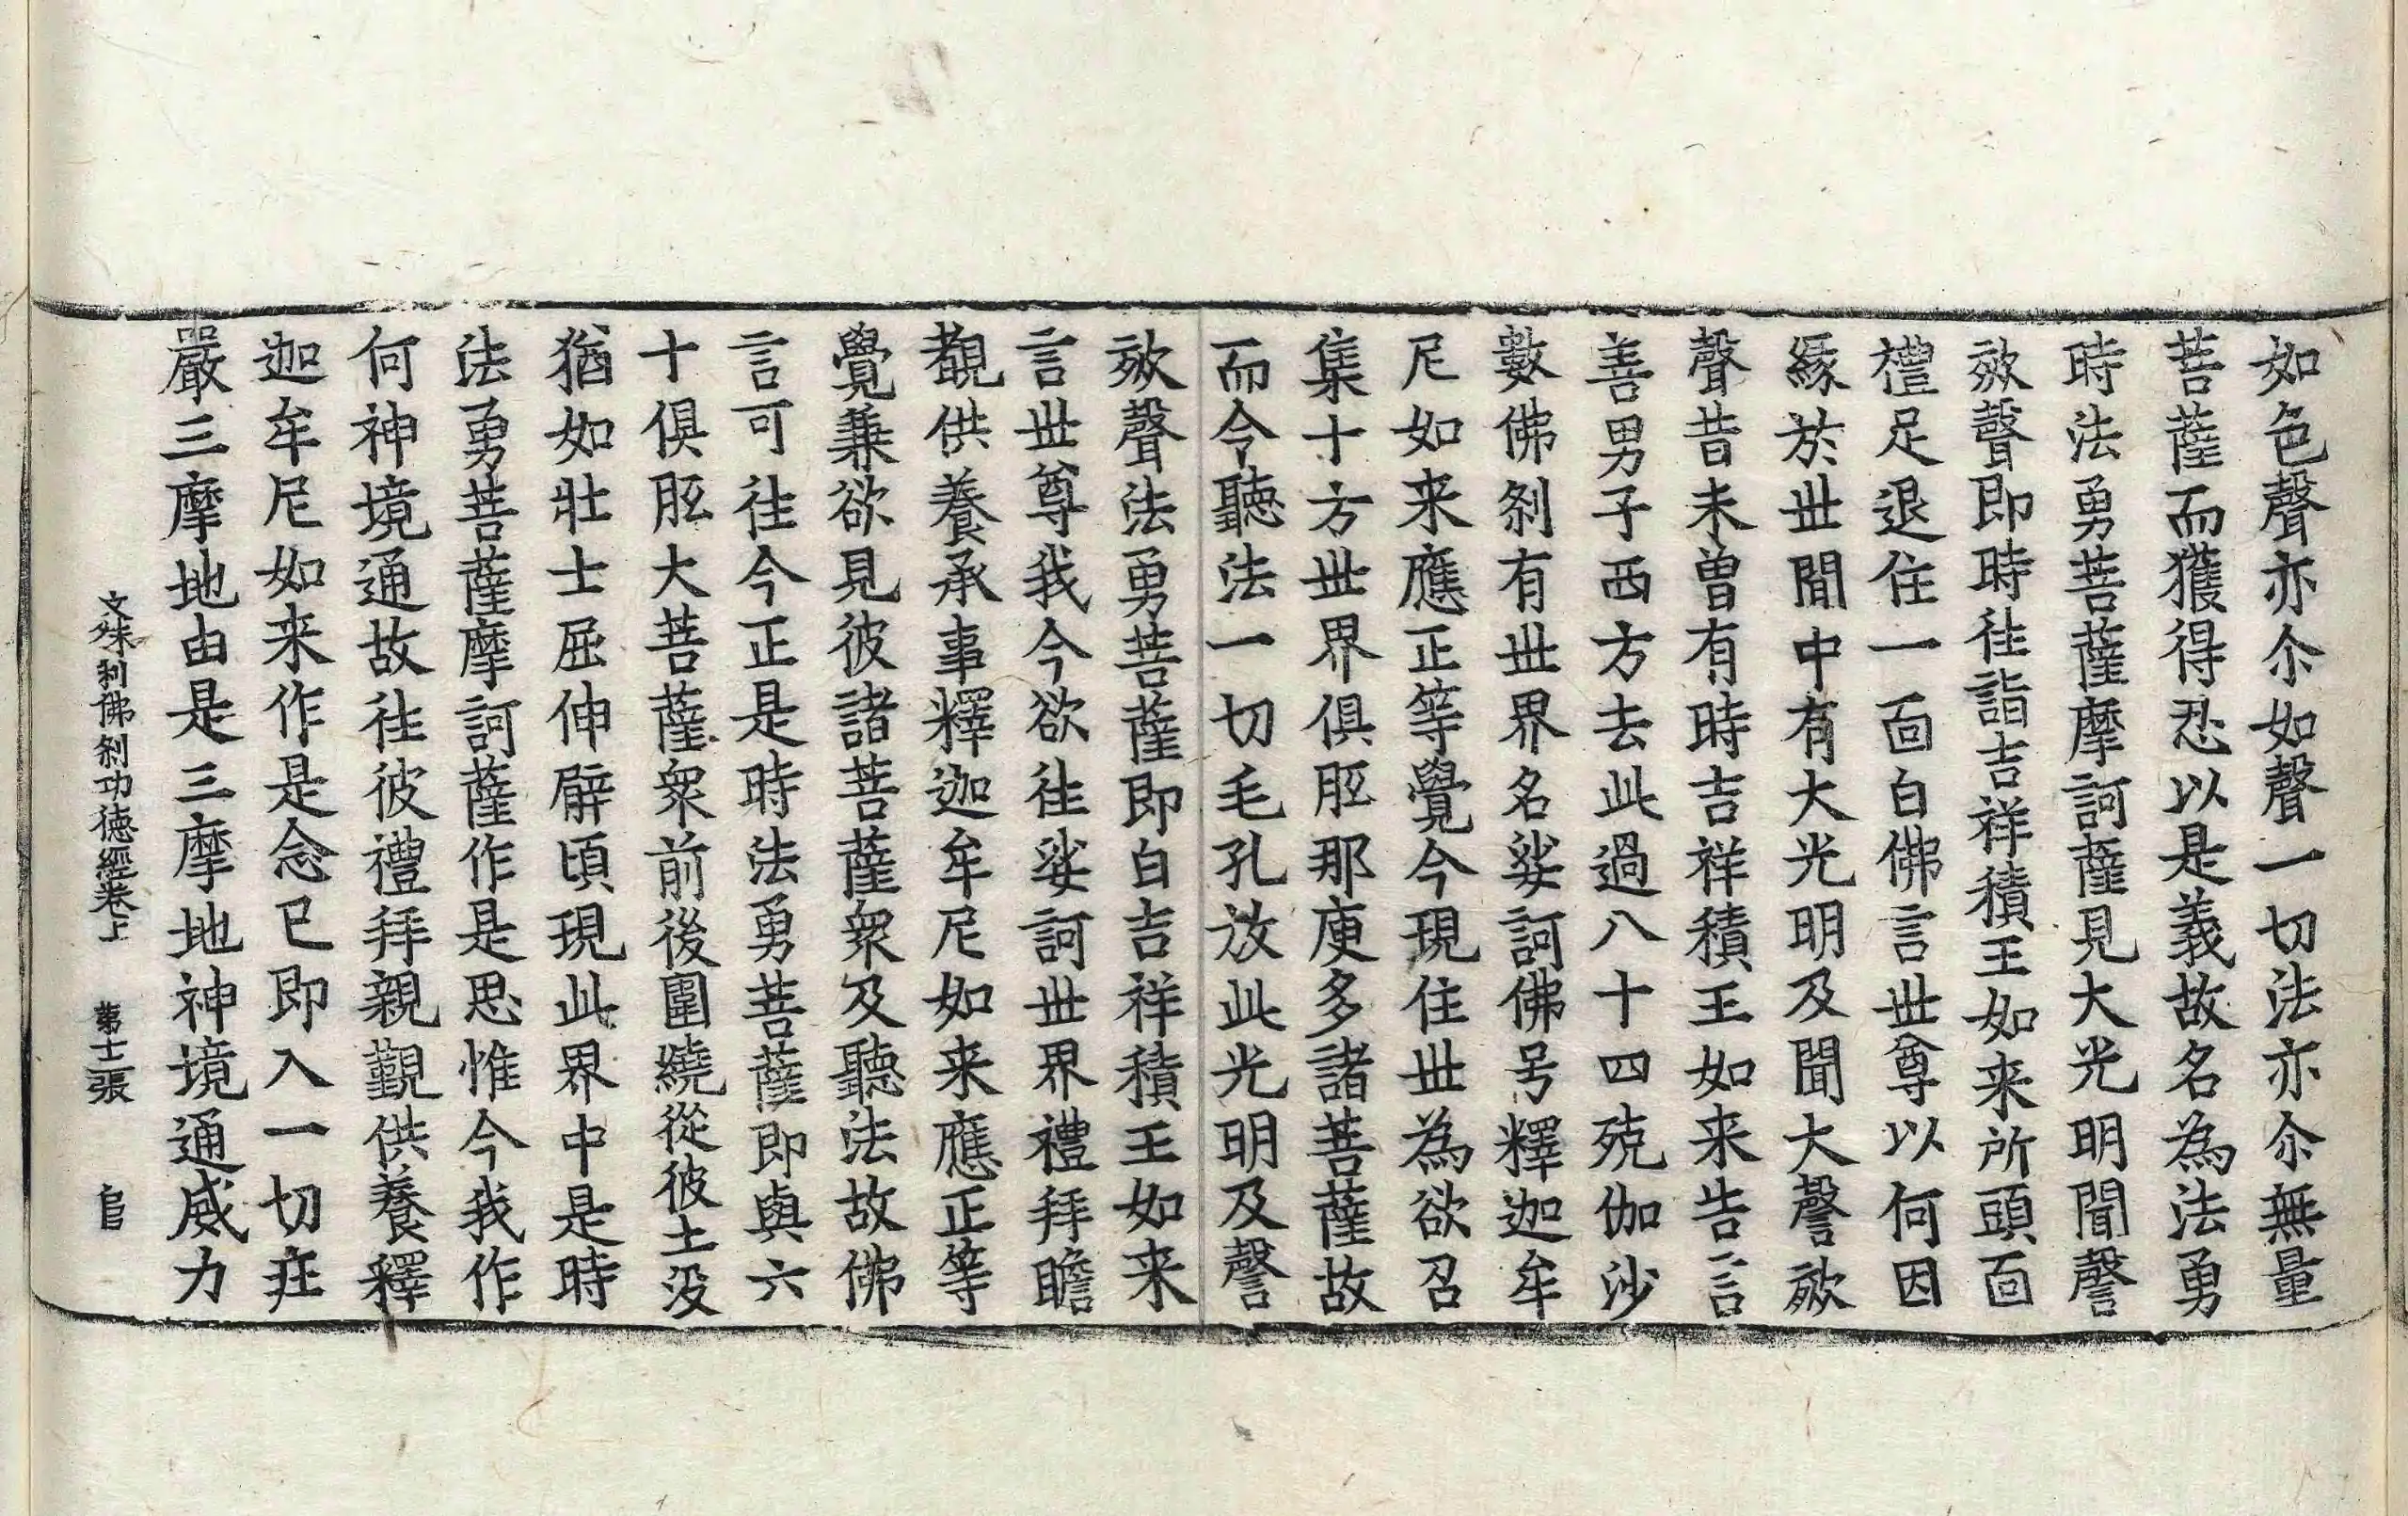 如色聲亦尒如聲一切法亦尒無量
菩薩而獲得忍以是義故名為法勇
時法勇菩薩摩訶薩見大光明聞謦
欬聲即時徃詣吉祥積王如来所頭面
禮足退住一面白佛言世尊以何因
緣於世間中有大光明及聞大謦欬
聲昔未曾有時吉祥積王如来告言
善男子西方去此過八十四殑伽沙
數佛刹有世界名娑訶佛号釋迦牟
尼如来應正等覺今現住世為欲召
集十方世界俱胝那庾多諸菩薩故
而令聽法一切毛孔放此光明及謦
欬聲法勇菩薩即白吉祥積王如来
言世尊我今欲徃娑訶世界禮拜瞻
覩供養承事釋迦牟尼如来應正等
覺兼欲見彼諸菩薩衆及聽法故佛
言可徃今正是時法勇菩薩即與六
十俱胝大菩薩衆前後圍繞從彼土没
猶如壯士屈伸臂頃現此界中是時
法勇菩薩摩訶薩作是思惟今我作
何神境通故徃彼禮拜親觀供養釋
迦牟尼如来作是念已即入一切莊
嚴三摩地由是三摩地神境通威力
文殊利佛刹功德經卷上 第十二張 官